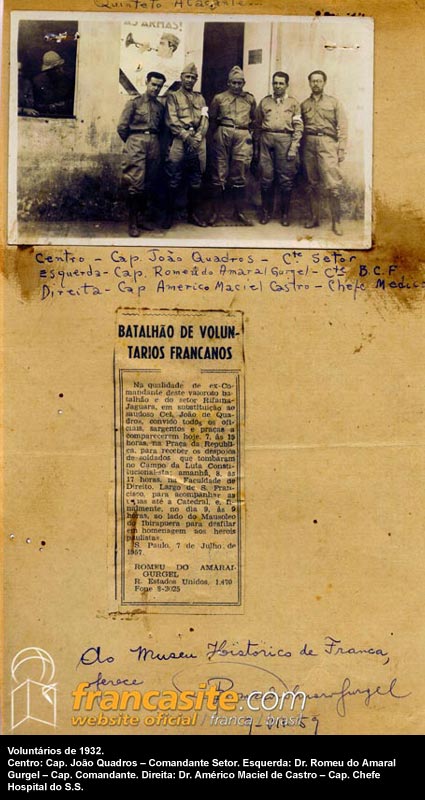 Quinteto Atacante...
ÀS ARMAS!
Centro - Cap. João Quadros - Cte Setor
esquerda - Cap. Romeu do Amaral Gurgel - Cte B.C.F.
Direita - Cap Americo Maciel Castro - Chefe Medico
BATALHÃO DE VOLUN-
TARIOS FRANCANOS
Na qualidade de ex-Co-
mandante deste valoroso ba-
talhão e do setor Rifaina-
Jaguara, em substituição ao
saudoso Cel. João de Qua-
dros, convido todos os ofi-
ciais, sargentos e praças a
comparecerem hoje, 7, às 15
horas, na Praça da Repúbli-
ca, para receber os despojos
de soldados que tombaram
no Campo da Luta Consti-
tucionalista; amanhã, 8, às
17 horas, na Faculdade de
Direito, Largo de S. Fran-
cisco, para acompanhar as
urnas até a Catedral, e, fi-
nalmente, no dia 9, às 9
horas, ao lado do Mausoleu
do Ibirapuera para desfilar
em homenagem aos herois
paulistas.
S. Paulo, 7 de Julho, de
1957.
ROMEU DO AMARAL
GURGEL
R. Estados Unidos, 1.470
Fone 8-2025
Ao Museu Historico de Franca,
oferece
Romeu do Amaral Gurgel
francasite.com
website oficial / franca / brasil
Voluntários de 1932.
Centro: Cap. João Quadros – Comandante Setor. Esquerda: Dr. Romeu do Amaral
Gurgel – Cap. Comandante. Direita: Dr. Américo Maciel de Castro – Cap. Chefe
Hospital do S.S.